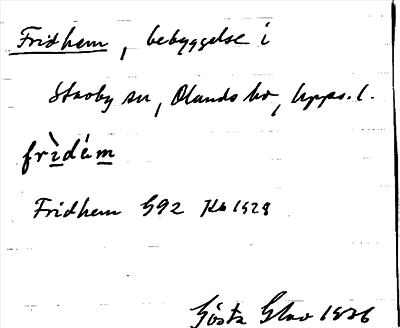 Fridhem, bebyggelse i
Stavby sn, Olands hd, Upps. l.
frìdém
Fridhem G92 Kb 1928
Gösta